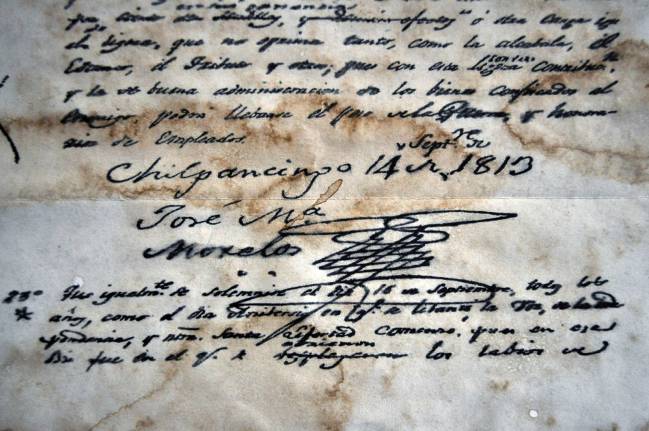 de ligera, que no oprima tanto, como la alcabala, el
Estanco, el Tributo y otros; pues con esta ligera Contribu.
y la buena administracion de los bienes confiscados al
Enemigo podrá llevarse el peso de la Guerra, y honora
rios de Empleados.
Chilpancingo 14 de Septre de 1813
José Ma
Morelos
23º Que igualmte se solemnice el dia 16 de Septiembre, todos los
años, como el dia Aniversario en q.e se levantó la Voz, de la Inde
pendencia, y ntra. Santa Libertad Comenzó, pues en ese
Dia fue en el q.e se desplegaron los labios de